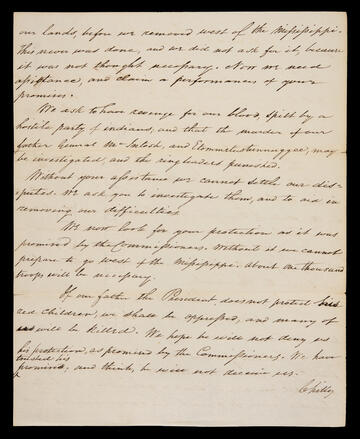 our lands, before we removed west of the Mississippi.
This never was done, and we did not ask for it, because
it was not thought necessary. Now we need
assistance, and claim a performance of your
promises.
We ask to have revenge for our blood, spilt by a
hostile party of indians, and that the murder of our
father General McIntosh, and Etommetustunnuggee, may
be investigated, and the ringleaders punished.
Without your assistance we cannot settle our dis-
putes. We ask you to investigate them, and to aid in
removing our difficulties.
We now look for your protection as it was
promised by the Commissioners. Without it we cannot
prepare to go west of the Mississippi. About one thousand
troops will be necessary.
If our father the President does not protect his
red Children, we shall be oppressed, and many of
us will be killed. We hope he will not deny us
his protection, as promised by the Commissioners. We have
trusted his
promise, and think, he will not deceive us.
Chilly